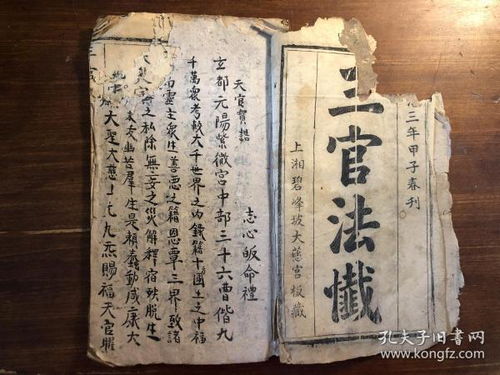 三年甲子春刊
三官法懺
上湘碧峰坡大慈宮板藏
天官寶誥 志心皈命禮
玄都元陽紫微宮中部三十六曹偕九
千萬衆考較大千世界之內錄籍十國土之中福
靈主衆生善惡之籍恩覃三界致諸
之私除無妄之災解釋宿殃脫生
幽苦羣生是賴蠢動咸康大
大聖大慈 九炁賜福天官曜
孔夫子旧书网
www.kongfz.com